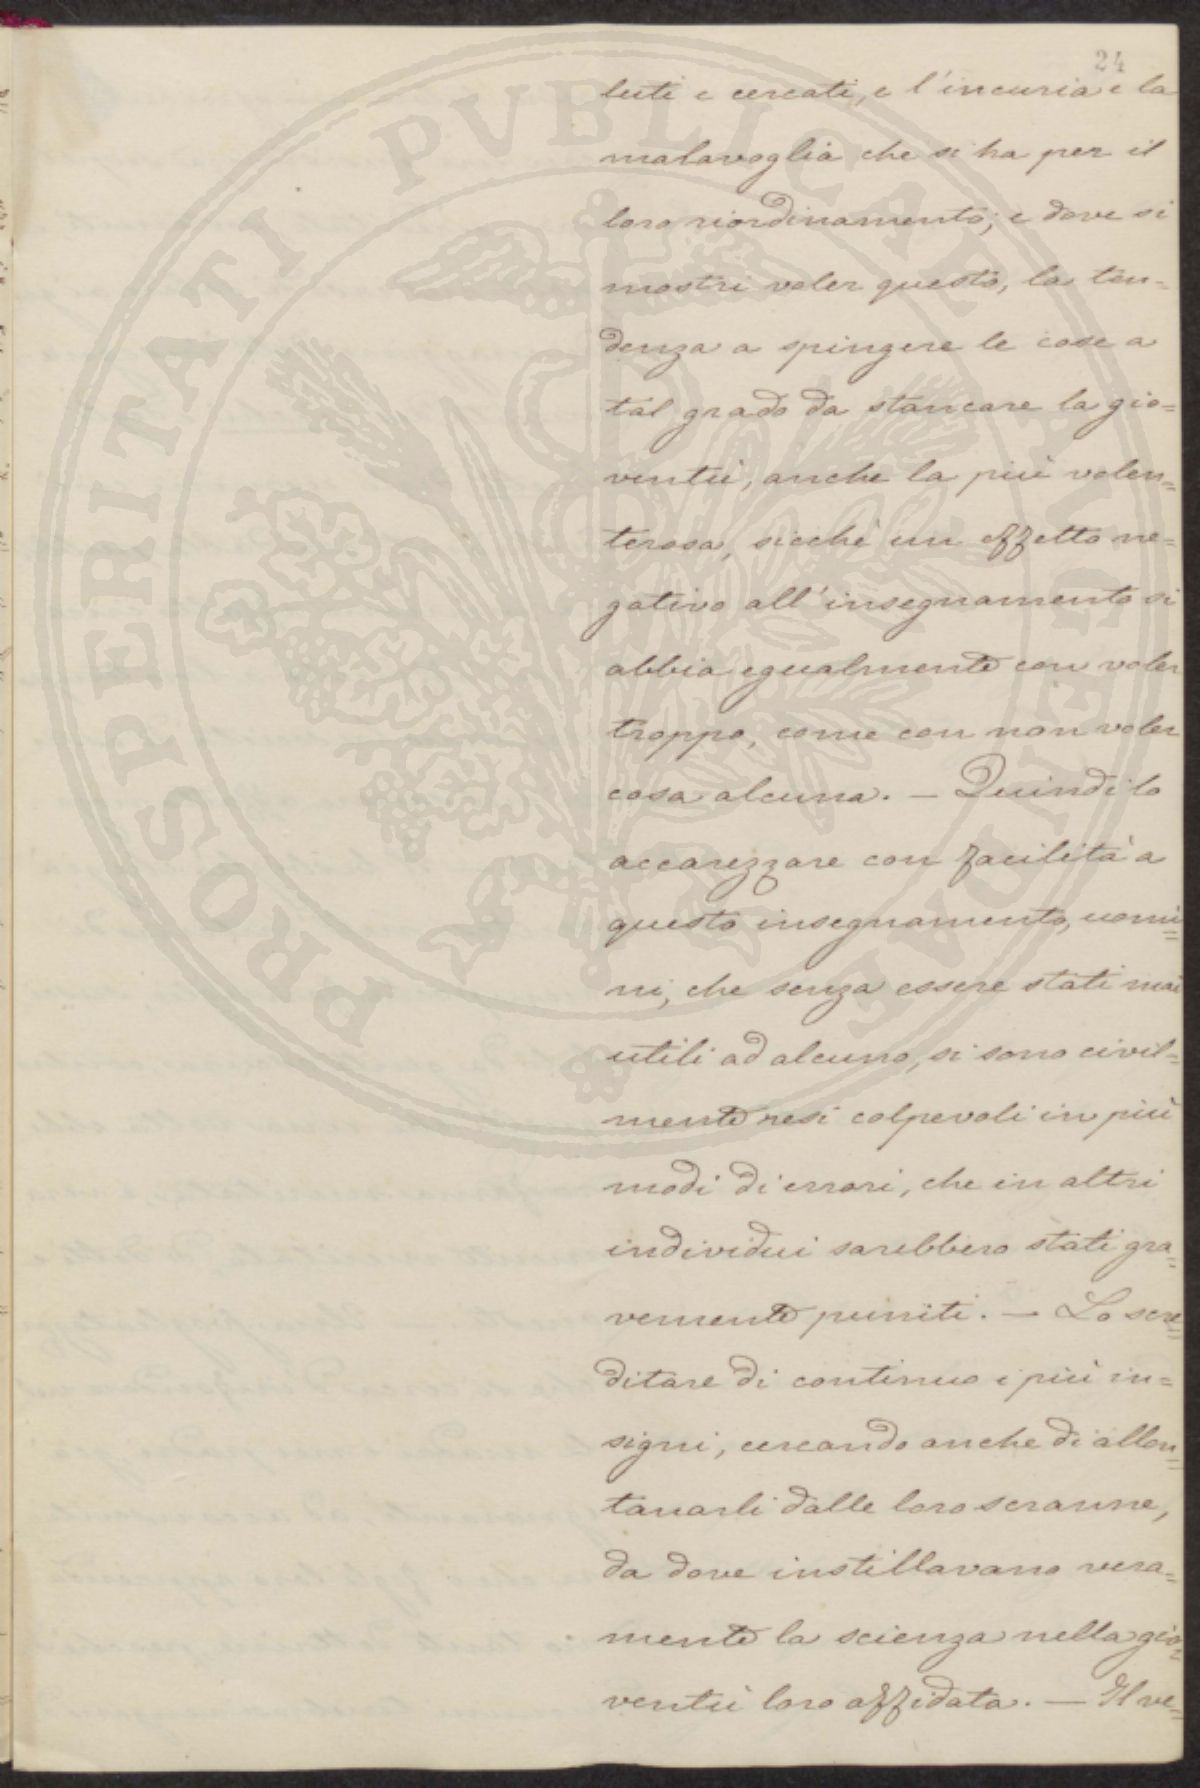 24
luti e cercati, e l'incuria e la
malavoglia che si ha per il
loro riordinamento; e dove si
mostri voler questo, la ten=
denza a spingere le cose a
tal grado da stancare la gio=
ventù, anche la più volen=
terosa, sicchè un effetto ne=
gativo all'insegnamento si
abbia egualmente con voler
troppo, come con non voler
cosa alcuna. — Quindi lo
accarezzare con facilità a
questo insegnamento, uomi=
ni, che senza essere stati mai
utili ad alcuno, si sono civil=
mente resi colpevoli in più
modi di errori, che in altri
individui sarebbero stati gra=
vemente puniti. — Lo scre=
ditare di continuo i più in=
signi, cercando anche di allon=
tanarli dalle loro scranne,
da dove instillavano vera=
mente la scienza nella gio=
ventù loro affidata. — Il ve=
PROSPERITATI PVBLICAE AVGENDAE